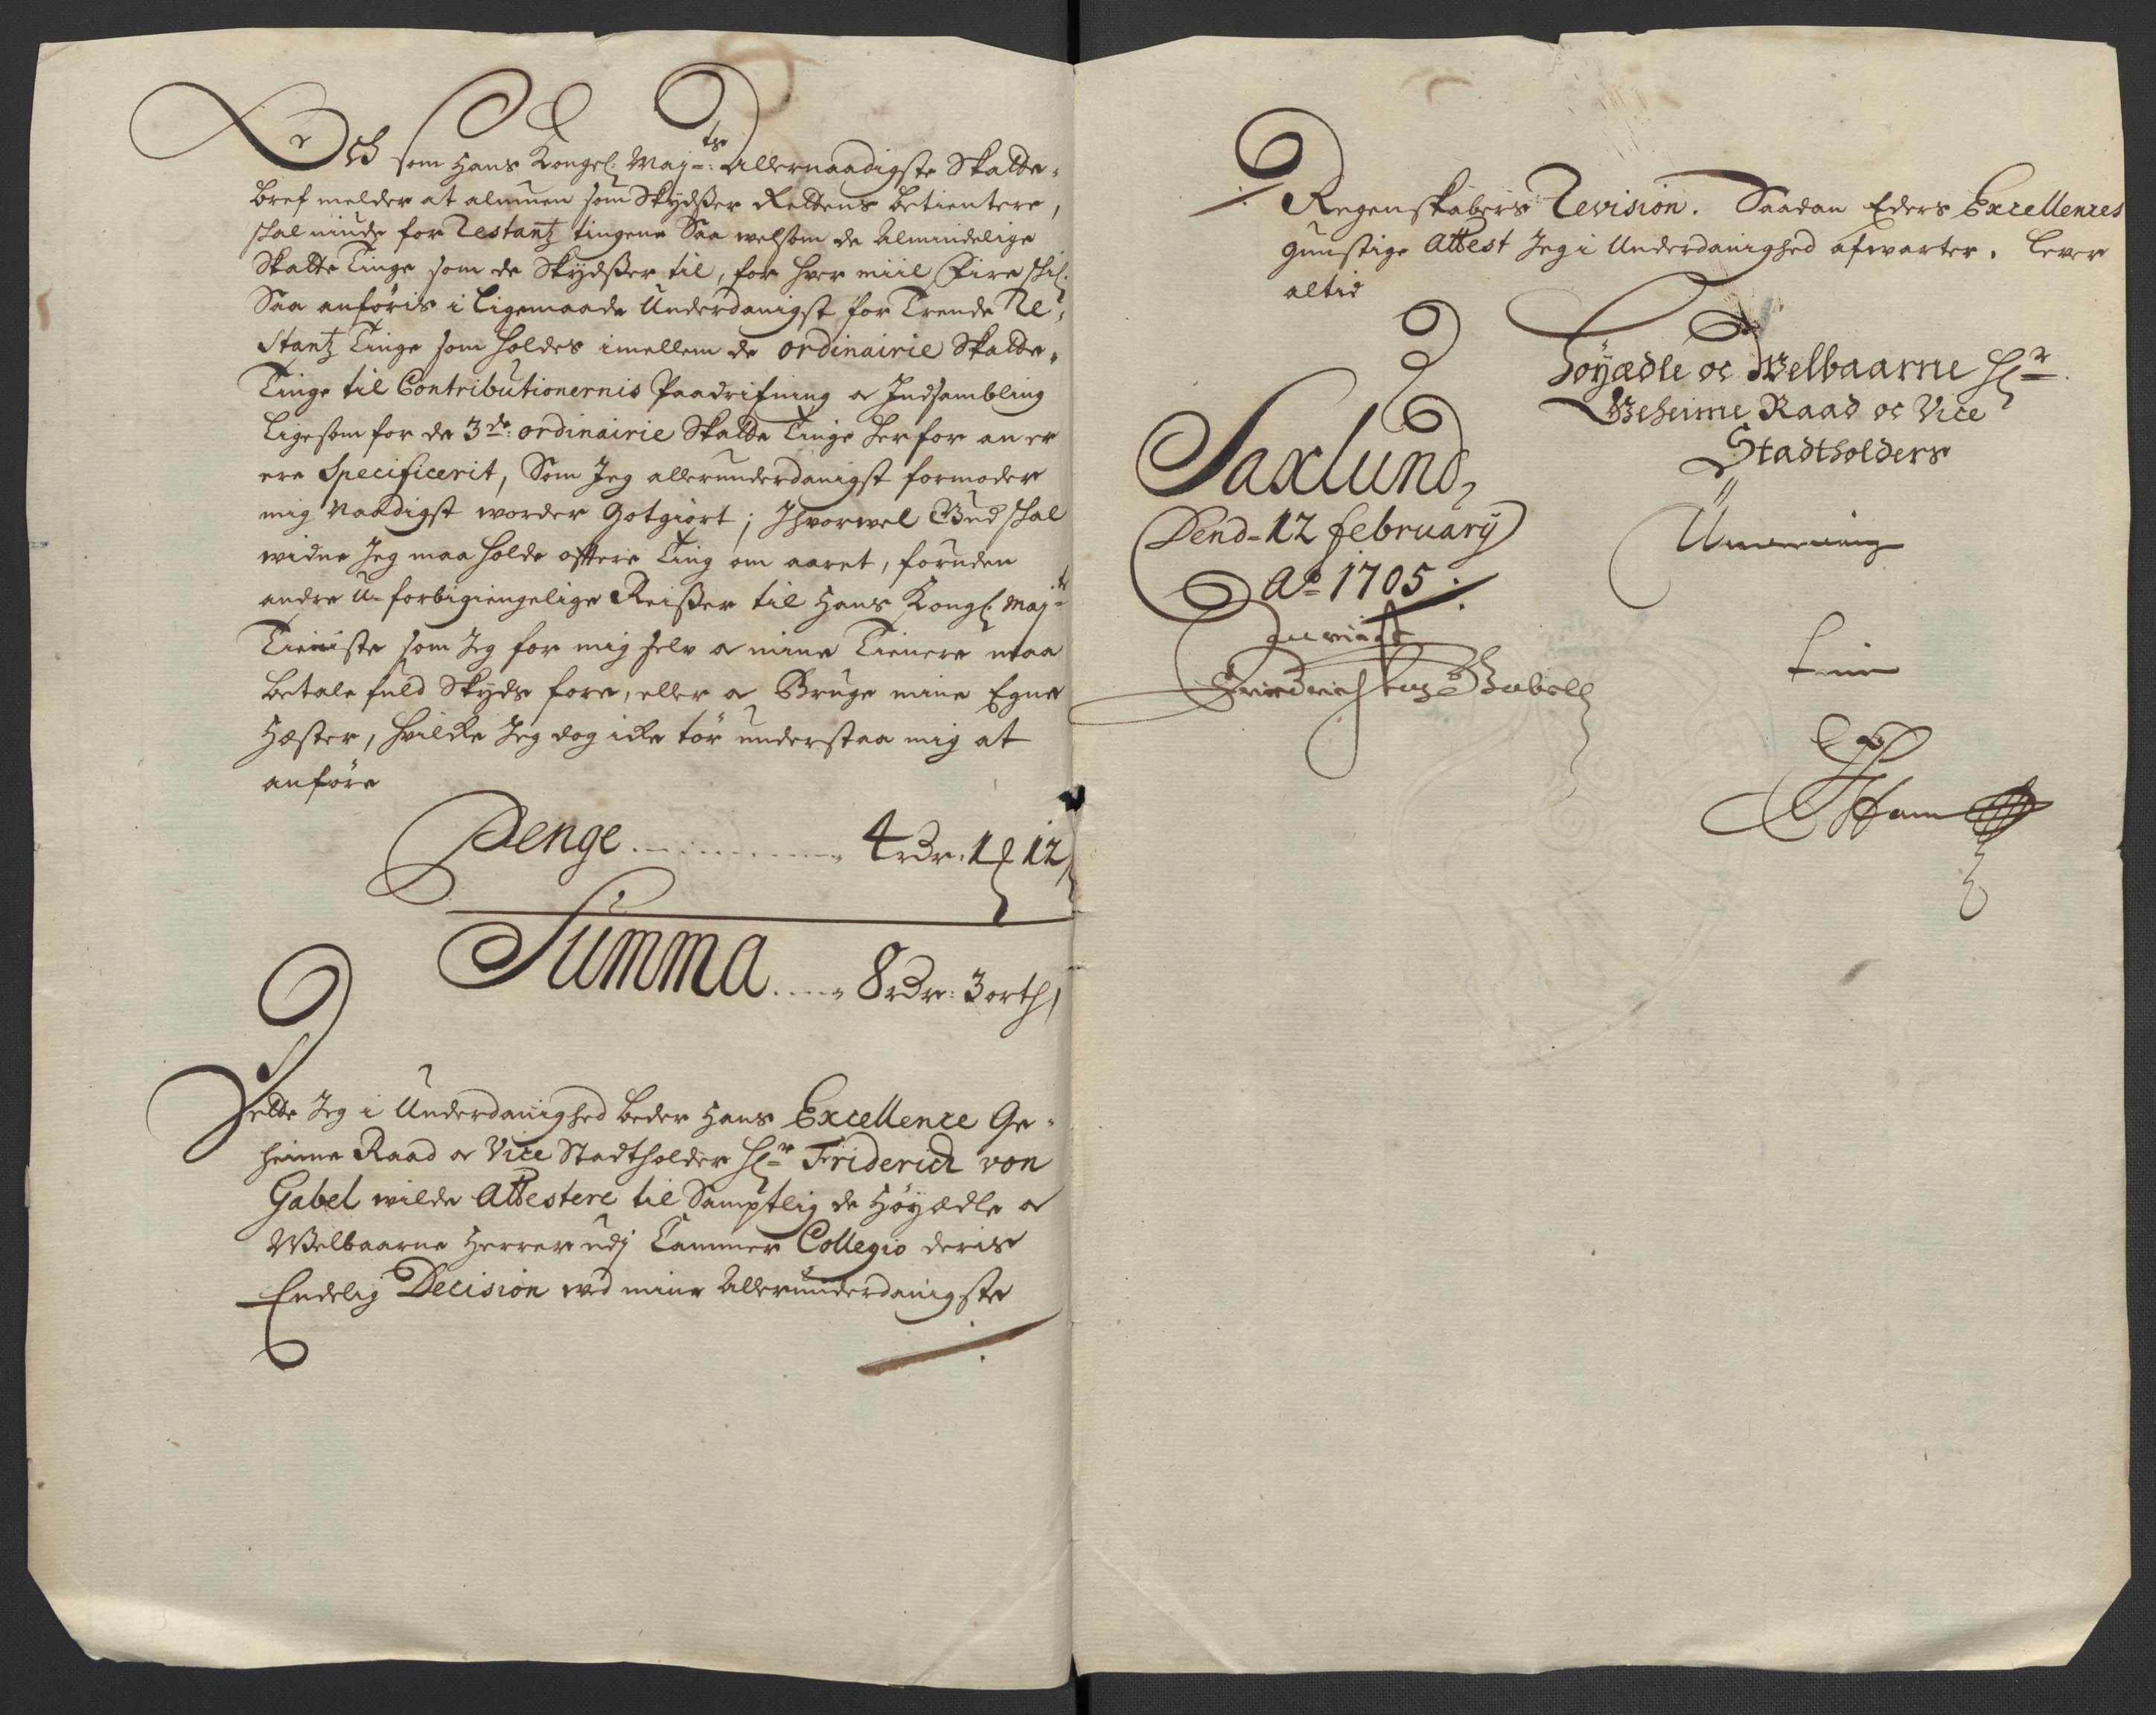 Och som Hans Kongel: Maj=ts: Allernaadigste Skatte-
bref melder at almuen som Skydtzer Rettens betientere,
skal niude for Restantz tingene Saa welsom de Almindelige
Skatte Tinge som de Skydtzer til, for hver miil Fire skil:
Saa anføris i Ligemaade Underdanigst for Trende Re-
stantz Tinge som holdes imellem de ordinairie Skatte-
Tinge til Contributionernis Paadrifning oc Indsambling
Ligesom for de 3de: ordinairie Skatte Tinge her for an er
ere Specificerit, Som Jeg allerunderdanigst formoder
mig Naadigst worder Gotgiort; Ihvorwel Gud skal
widne Jeg maa holde oftere Ting om aaret, foruden
andre U-forbigiengelige Reitzer til Hans Kongl: Maj=ts
Tieniste som Jeg for mig selv oc mine Tienere maa
betale fuld Skyds fore, eller oc Bruge mine Egne
Hæster, hvilke Jeg dog icke tør understaa mig at
anføre
Penge ........... 4 rdr: 1 12
Summa .... 8 rdr: 3 orth
Dette Jeg i Underdanighed beder Hans Excellence Ge-
heime Raad oc Vice Stadtholder Hr Friderich von
Gabel wilde Attestere til Samptlig de Høyædle oc
Welbaarne Herrer udj Cammer Collegio deris
Endelig Decision wed mine Allerunderdanigste
Regenskabers Revision. Saadan Eders Excellences
gunstige Attest Jeg i Underdanighed afwarter. Lever
altid
Høyædle oc Welbaarne Hr
Geheime Raad oc Vice
Stadtholders
Saxlund,
Dend 12 February
Ao 1705